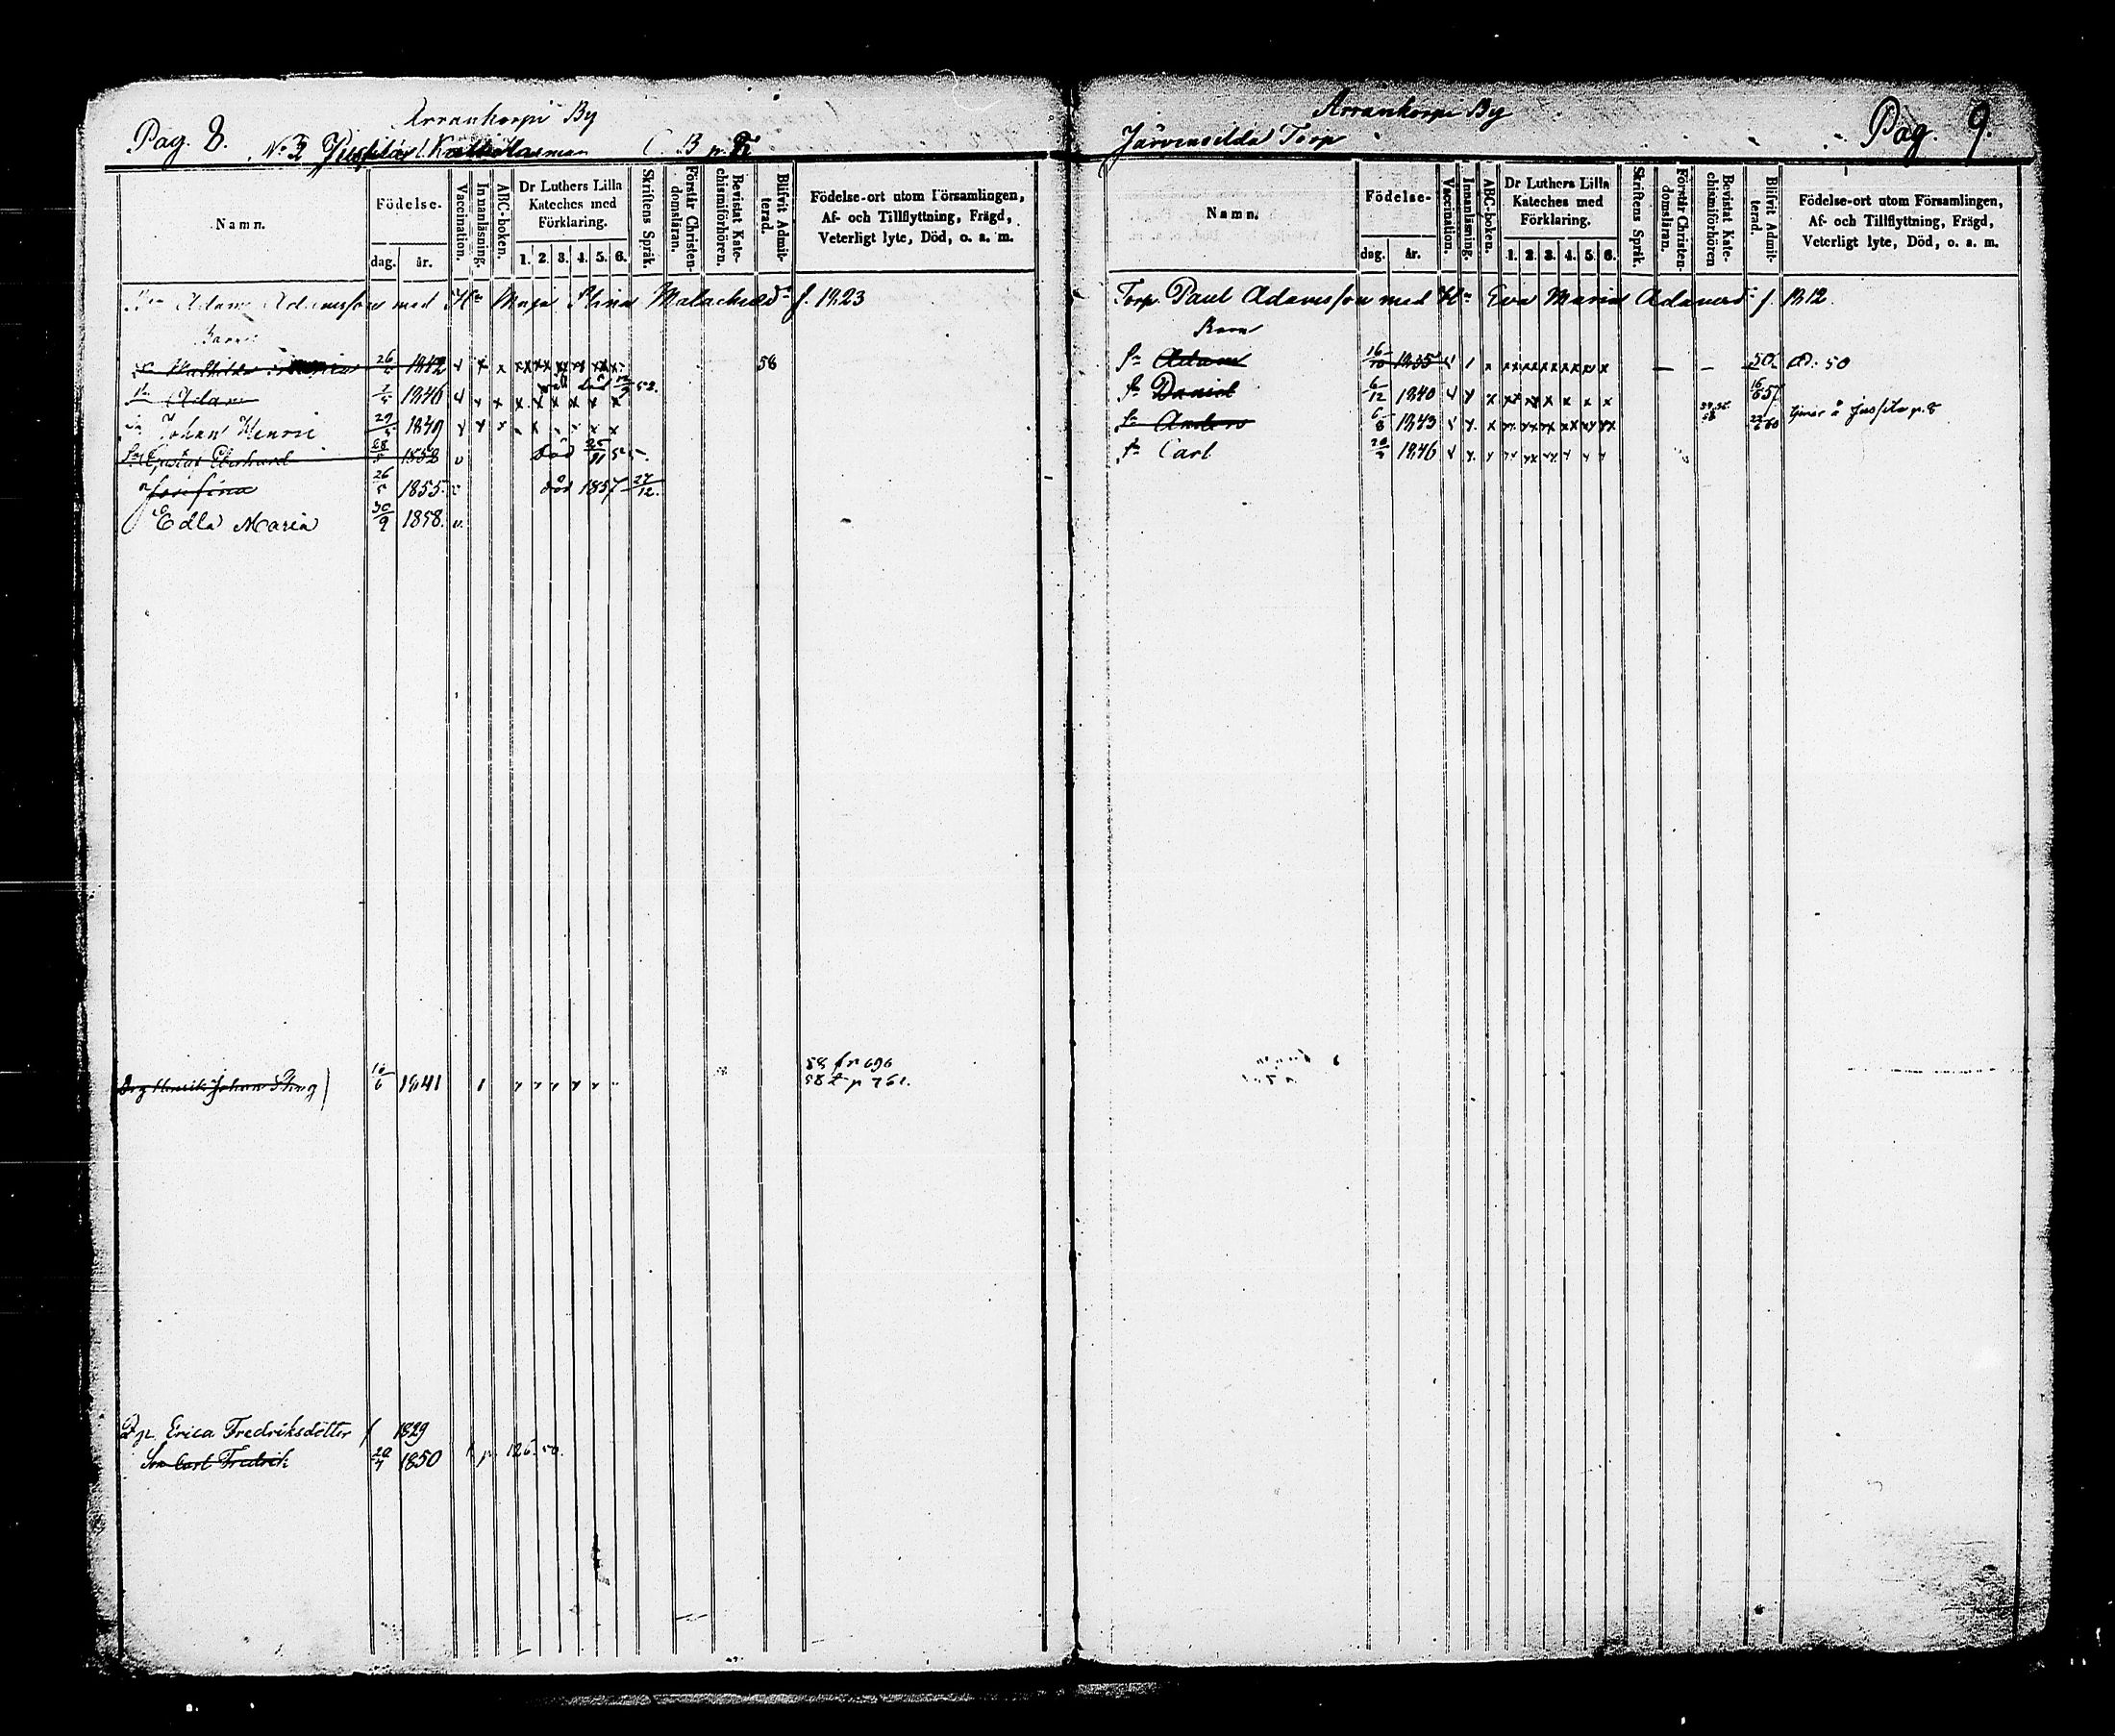 Pag. 8.
Arrankorpi By
C. B. p.
Namn.
Födelse.
dag. år.
Vaccination.
Innanläsning.
ABC-boken.
Dr Luthers Lilla Kateches med Förklaring.
1. 2. 3. 4. 5. 6.
Skriftens Språk.
Förstår Christendomsläran.
Bevistat Katechismiförhören.
Blifvit Admitterad.
Födelse-ort utom Församlingen,
Af- och Tillflyttning, Frägd,
Veterligt lyte, Död, o. a. m.
Adam Adamsson med Hu Maja Stina Malachiid:r f. 1823
Barn
Mathilda 26 1842 58
Adam 1846
Johan Henric 29 1849
Gustaf Eberhard 1852 död 25/11 55.
Josefina 26/5 1855. död 1857 27/12.
Edla Maria 30/9 1858. v.
58 fr 696
Drg Henrik Johan 10/6 1841 58 t p 761.
Erica Fredriksdotter f 1829
Son Carl Fredrik 20/7 1850 p. 126. 50.
Arrankorpi By
Pag. 9.
Torp
Namn.
Födelse-
dag. år.
Vaccination.
Innanläsning.
ABC-boken.
Dr Luthers Lilla Kateches med Förklaring.
1. 2. 3. 4. 5. 6.
Skriftens Språk.
Förstår Christendomsläran.
Bevistat Katechismiförhören
Blifvit Admitterad.
Födelse-ort utom Församlingen,
Af- och Tillflyttning, Frägd,
Veterligt lyte, Död, o. a. m.
Torp. Paul Adamsson med Hu Eva Maria Adamsd:r f. 1812.
Barn
Sn Adam 16/10 1835 50 50
Sn Daniel 6/12 1840 16/6 57
Sn Anders 6/8 1843 tjenar å Jussila p. 8
Sn Carl 1846